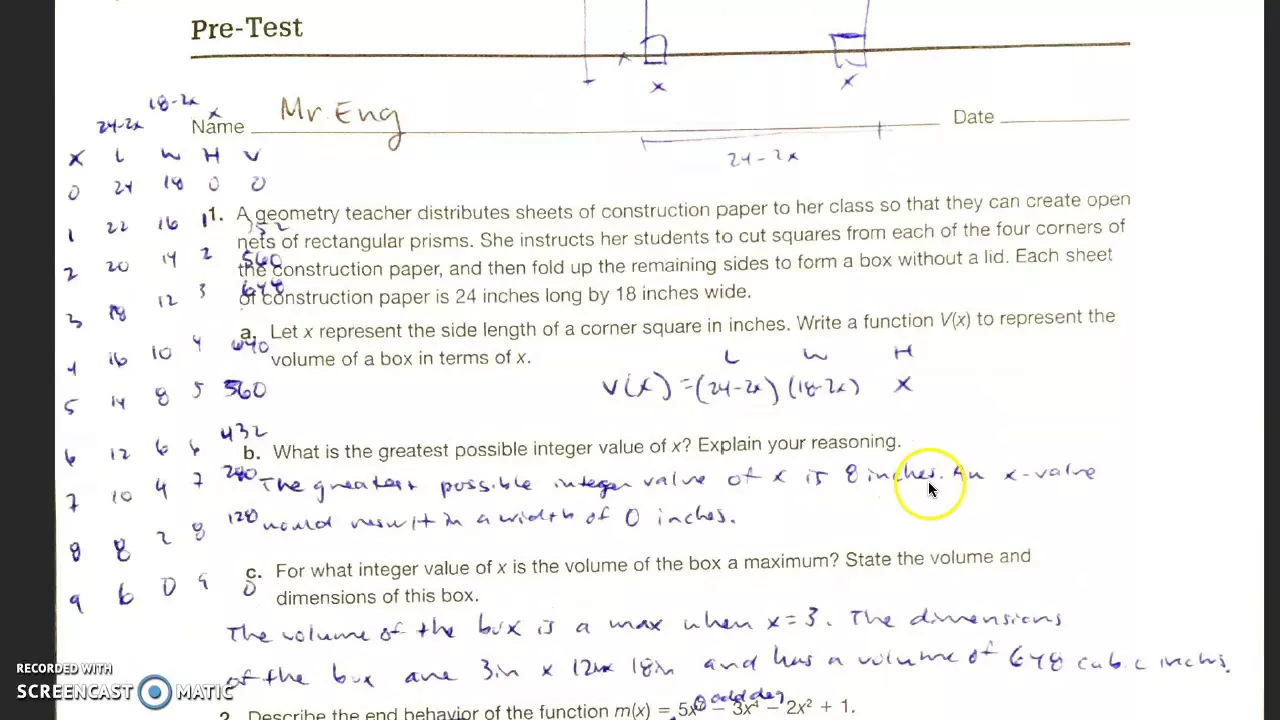 Pre-Test
x
x
x
Name Mr. Eng Date
24-2x
24-2x 18-2x x
x L W H V
0 24 18 0 0
1 22 16 1 752
2 20 14 2 560
3 18 12 3 648
4 16 10 4 640
5 14 8 5 560
6 12 6 6 432
7 10 4 7 280
8 8 2 8 128
9 6 0 9 0
1. A geometry teacher distributes sheets of construction paper to her class so that they can create open
nets of rectangular prisms. She instructs her students to cut squares from each of the four corners of
the construction paper, and then fold up the remaining sides to form a box without a lid. Each sheet
of construction paper is 24 inches long by 18 inches wide.
a. Let x represent the side length of a corner square in inches. Write a function V(x) to represent the
volume of a box in terms of x.
L W H
V(x) = (24-2x) (18-2x) x
b. What is the greatest possible integer value of x? Explain your reasoning.
The greatest possible integer value of x is 8 inches. An x-value
would result in a width of 0 inches.
c. For what integer value of x is the volume of the box a maximum? State the volume and
dimensions of this box.
The volume of the box is a max when x=3. The dimensions
of the box are 3in x 12in x 18in and has a volume of 648 cubic inches.
odd deg
2. Describe the end behavior of the function m(x) = 5x – 3x⁴ – 2x² + 1.
RECORDED WITH
SCREENCAST MATIC